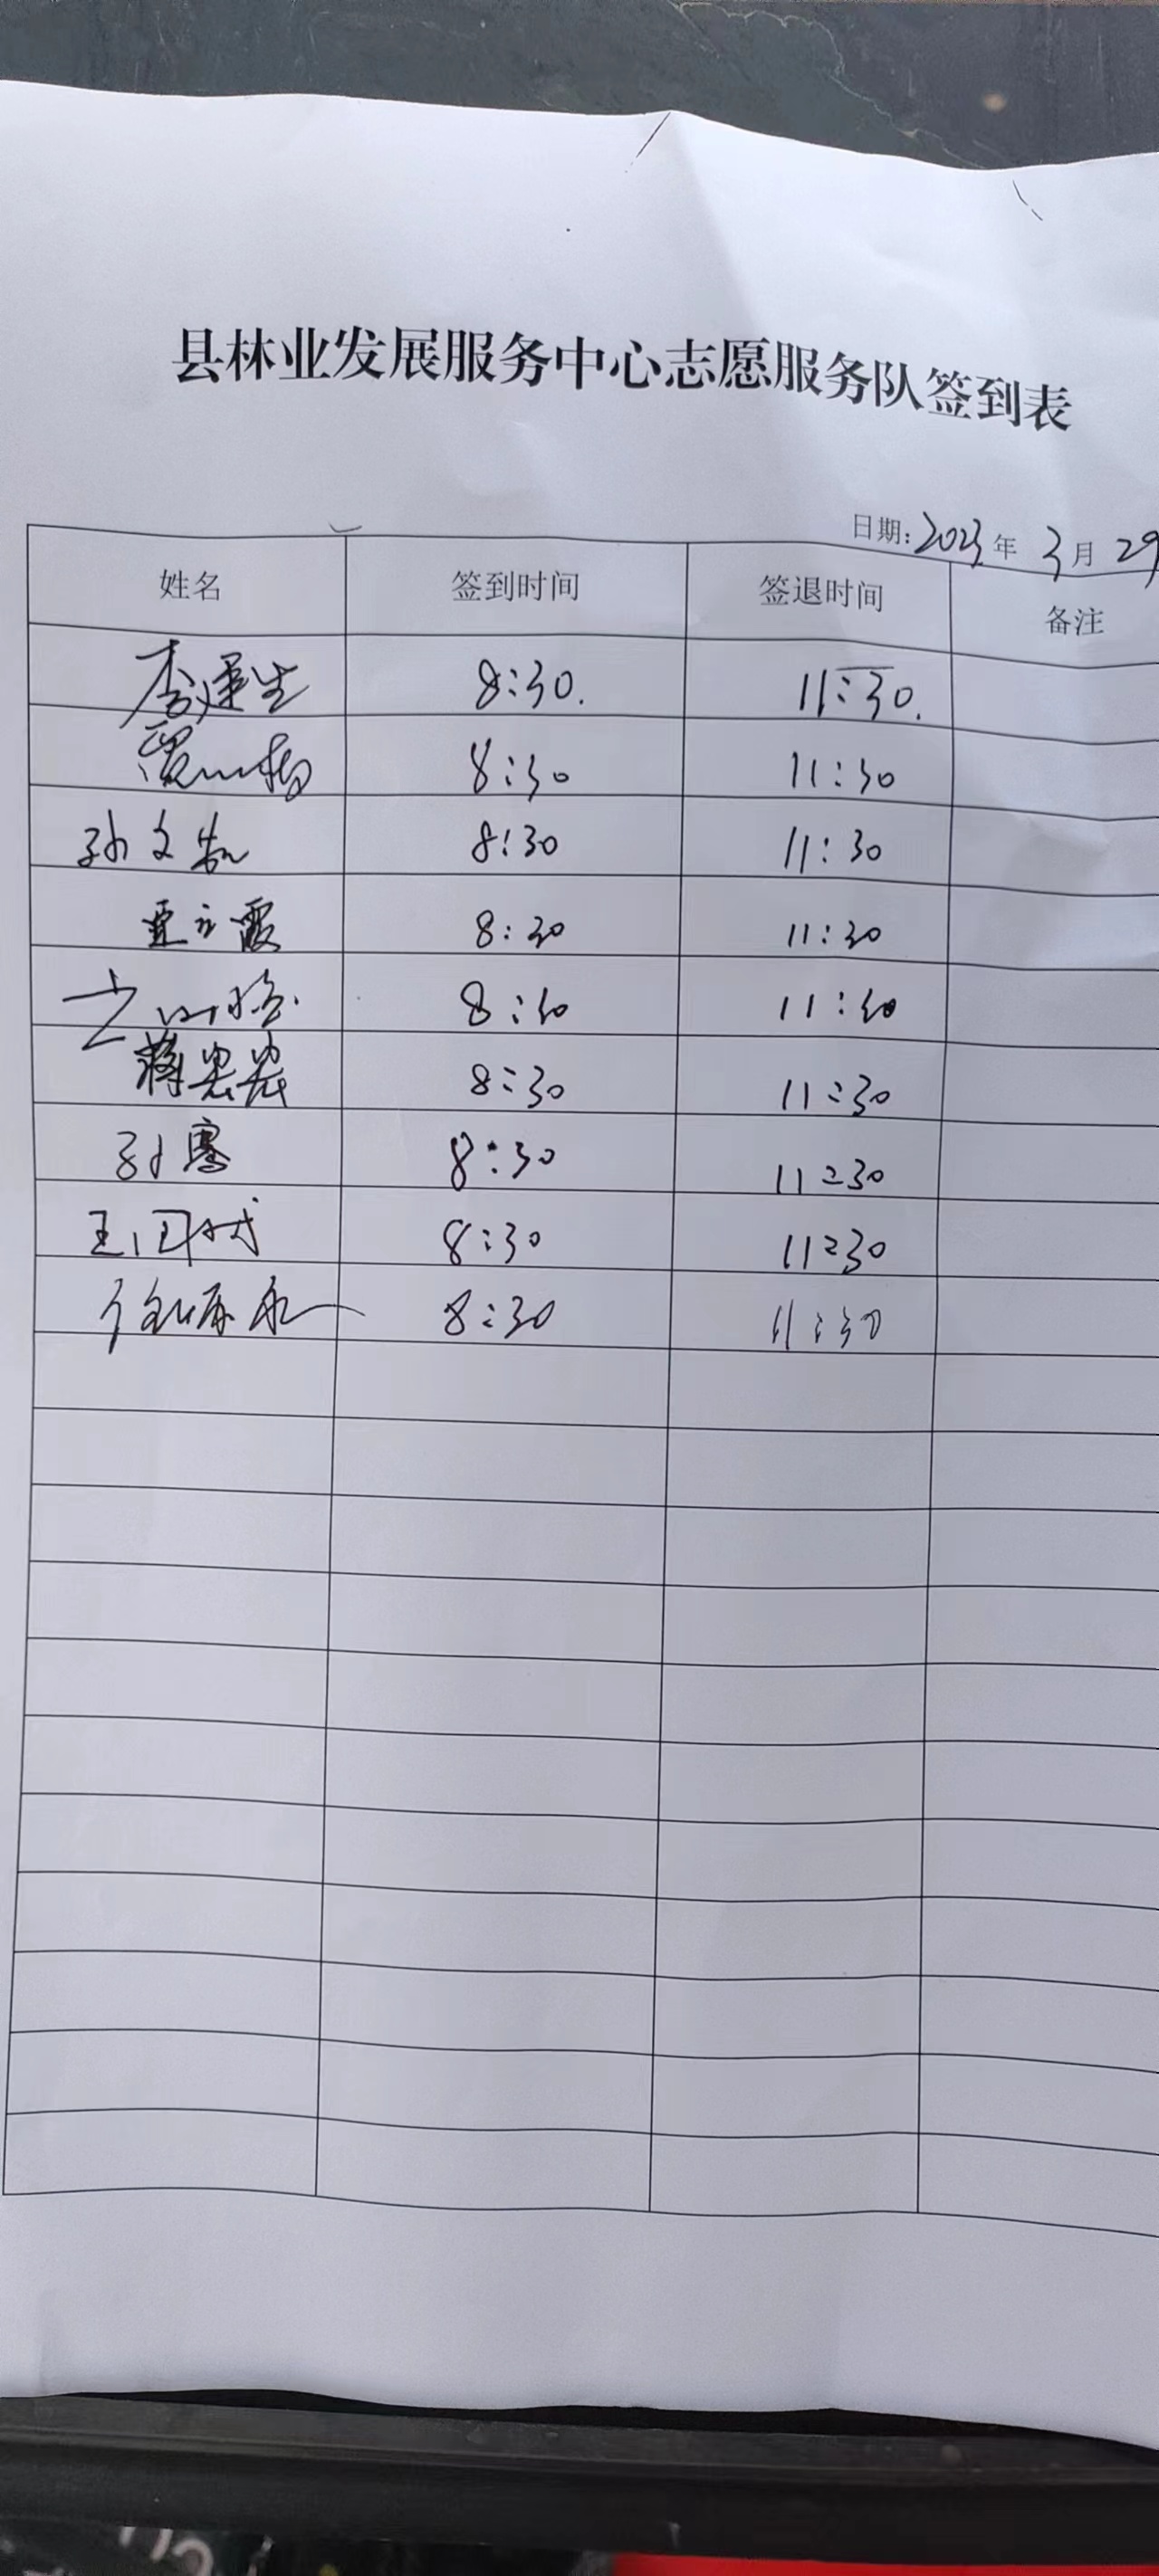 县林业发展服务中心志愿服务队签到表
日期: 2023年 3月 29
姓名 签到时间 签退时间 备注
李建生 8:30. 11:30.
8:30 11:30
孙文 8:30 11:30
霞 8:30 11:30
8:30 11:30
蒋宏宏 8:30 11:30
孙骞 8:30 11:30
王国成 8:30 11:30
徐 8:30 11:30